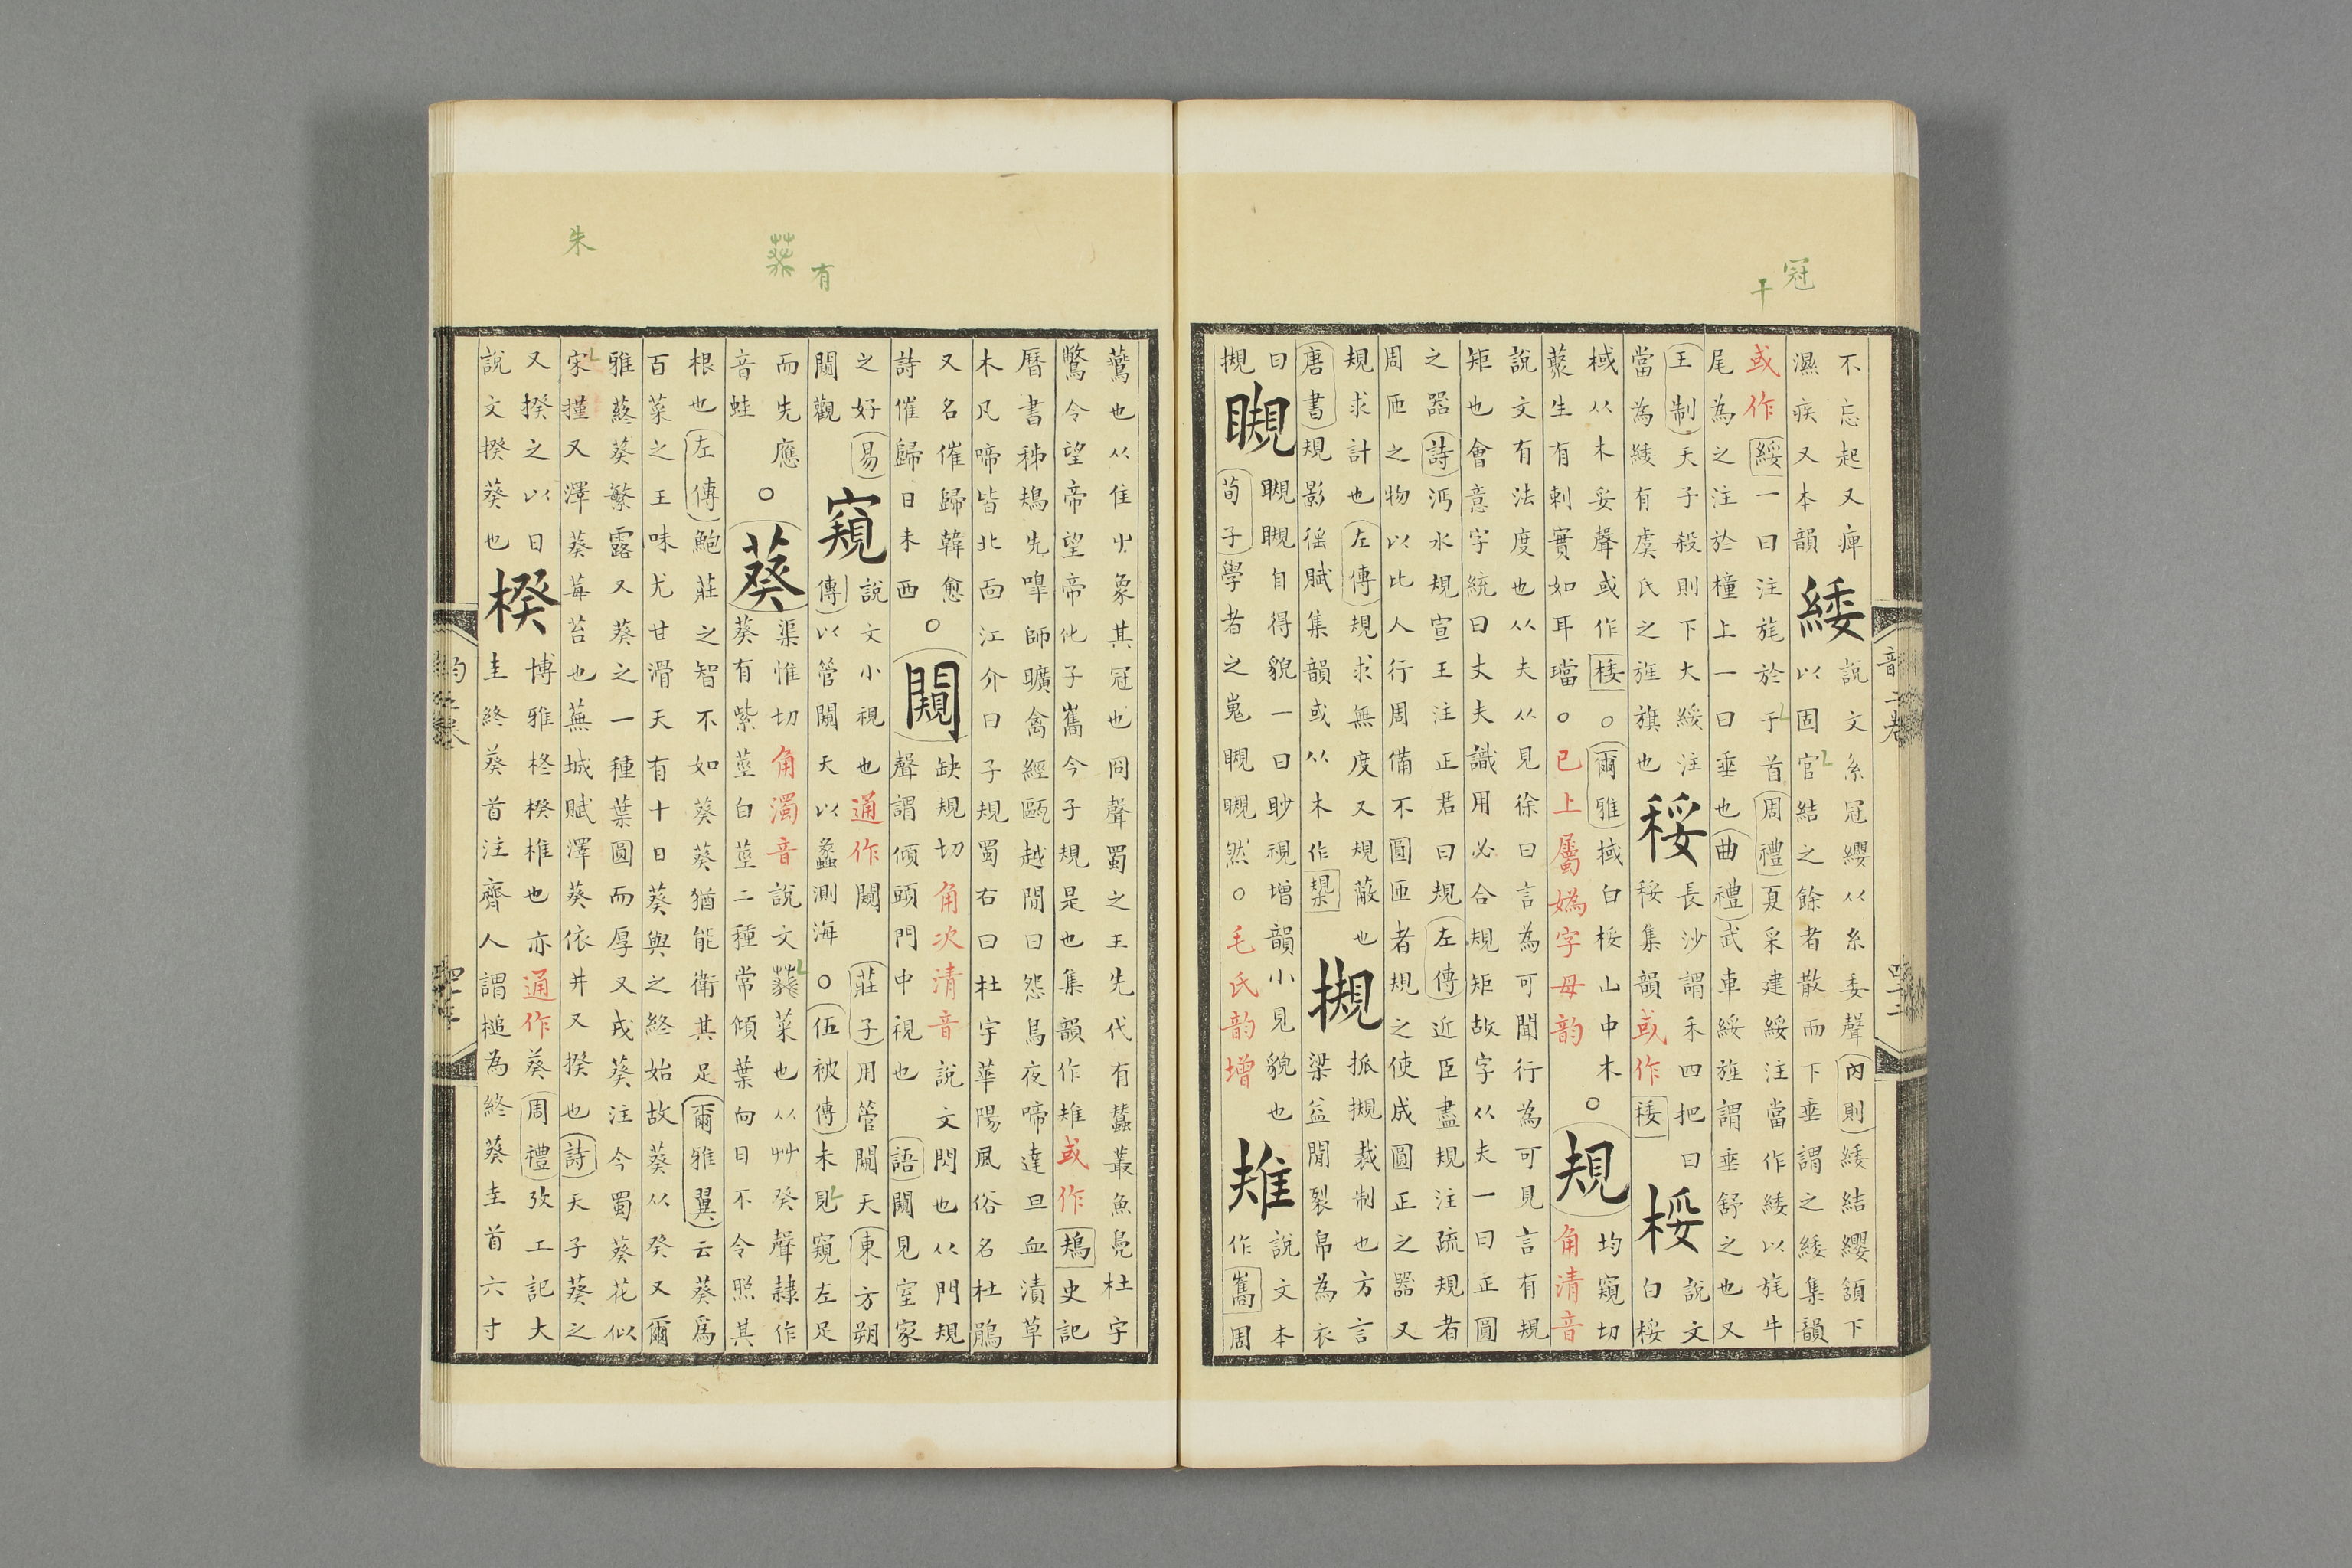 冠
干
不忘起又痺
濕疾又本韻
緌
說文系冠纓从糸委聲內則緌結纓頷下
以固官結之餘者散而下垂謂之緌集韻
或作綏一曰注旄於于首周禮夏采建綏注當作緌以旄牛
尾為之注於橦上一曰垂也曲禮武車綏旌謂垂舒之也又
王制天子殺則下大綏注
當為緌有虞氏之旌旗也
䅑
長沙謂禾四把曰
䅑集韻或作䅑
桵
說文
白桵
棫从木妥聲或作㮃○爾雅棫白桵山中木○
蕤生有刺實如耳璫○已上屬媯字母韵
規
均窺切
角清音
說文有法度也从夫从見徐曰言為可聞行為可見言有規
矩也會意字統曰丈夫識用必合規矩故字从夫一曰正圓
之器詩沔水規宣王注正君曰規左傳近臣盡規注疏規者
周匝之物以比人行周備不圓匝者規之使成圓正之器又
規求計也左傳規求無度又規蔽也
唐書規影徭賦集韻或从木作槼
摫
㧖摫裁制也方言
梁益間裂帛為衣
曰
摫
瞡
瞡瞡自得貌一曰眇視增韻小見貌也
荀子學者之嵬瞡瞡然○毛氏韵增
雉
說文本
作巂周
有
蕤
朱
鷰也从隹屮象其冠也冏聲蜀之王先代有蠶叢魚鳧杜宇
鷩令望帝望帝化子巂今子規是也集韻作雉或作鳺史記
曆書秭鳺先嘷師曠禽經甌越間曰怨鳥夜啼達旦血漬草
木凡啼皆北面江介曰子規蜀右曰杜宇華陽風俗名杜鵑
又名催歸韓愈
詩催歸日未西
○
闚
缺規切角次清音說文閃也从門規
聲謂傾頭門中視也　語闚見室家
之好易
闚觀
窺
說文小視也通作闚　莊子用管闚天東方朔
傳以管闚天以蠡測海○伍被傳未見窺左足
而先應
音蛙
○
葵
渠惟切角濁音說文菜也从艸癸聲隸作
葵有紫莖白莖二種常傾葉向日不令照其
根也左傳鮑莊之智不如葵葵猶能衛其足爾雅翼云葵爲
百菜之王味尤甘滑天有十日葵與之終始故葵从癸又爾
雅蔠葵蘩露又葵之一種葉圓而厚又戎葵注今蜀葵花似
宋槿又澤葵莓苔也蕪城賦澤葵依井又揆也詩天子葵之
又揆之以日
說文揆葵也
楑
博雅柊楑椎也亦通作葵周禮攷工記大
圭終葵首注齊人謂槌為終葵圭首六寸
韵二卷